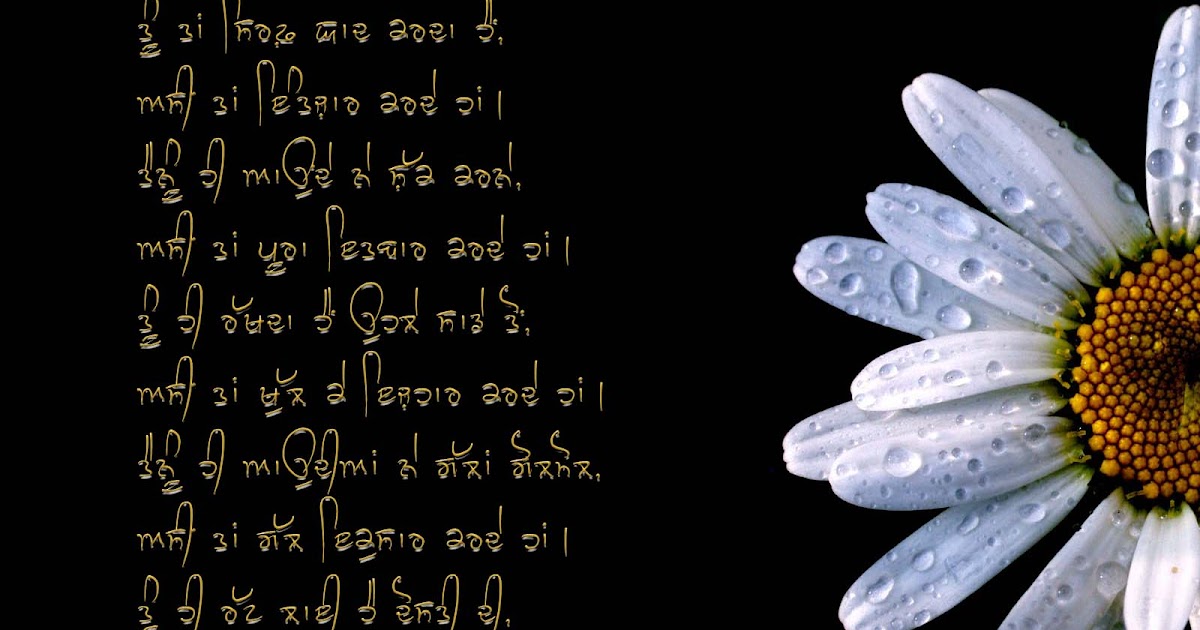 ਤੂੰ ਤਾਂ ਸਿਰਫ਼ ਯਾਦ ਕਰਦਾ ਹੈਂ,
ਅਸੀਂ ਤਾਂ ਇੰਤਜ਼ਾਰ ਕਰਦੇ ਹਾਂ।
ਤੈਨੂੰ ਹੀ ਆਉਂਦੇ ਨੇ ਸ਼ੱਕ ਕਰਨੇ,
ਅਸੀਂ ਤਾਂ ਪੂਰਾ ਇਤਬਾਰ ਕਰਦੇ ਹਾਂ।
ਤੂੰ ਹੀ ਰੱਖਦਾ ਹੈਂ ਉਹਲੇ ਸਾਡੇ ਤੋਂ,
ਅਸੀਂ ਤਾਂ ਖੁੱਲ ਕੇ ਇਜ਼ਹਾਰ ਕਰਦੇ ਹਾਂ।
ਤੈਨੂੰ ਹੀ ਆਉਂਦੀਆਂ ਨੇ ਗੱਲਾਂ ਗੋਲਮੋਲ,
ਅਸੀਂ ਤਾਂ ਗੱਲ ਇਕਸਾਰ ਕਰਦੇ ਹਾਂ।
ਤੂੰ ਹੀ ਰੱਟ ਲਾਈ ਹੈ ਦੋਸਤੀ ਦੀ,